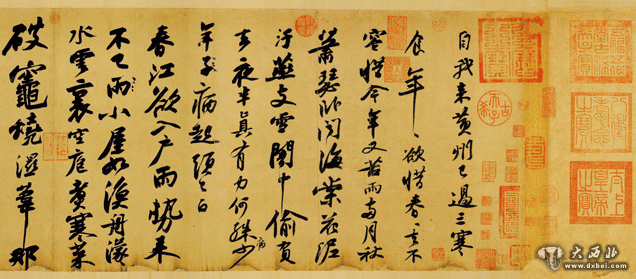 自我來黃州已過三寒
食年〻欲惜春〻去不
容惜今年又苦雨兩月秋
蕭瑟臥聞海棠花泥
汙燕支雪闇中偷負
去夜半真有力何殊少
病
年子病起頭已白
春江欲入戶雨勢來
不已雨小屋如漁舟濛
水雲裏空庖煮寒菜
破竈燒濕葦那
古希天子
八徵耄念之寶
太上皇帝之寶
大西北
www.dxbei.com